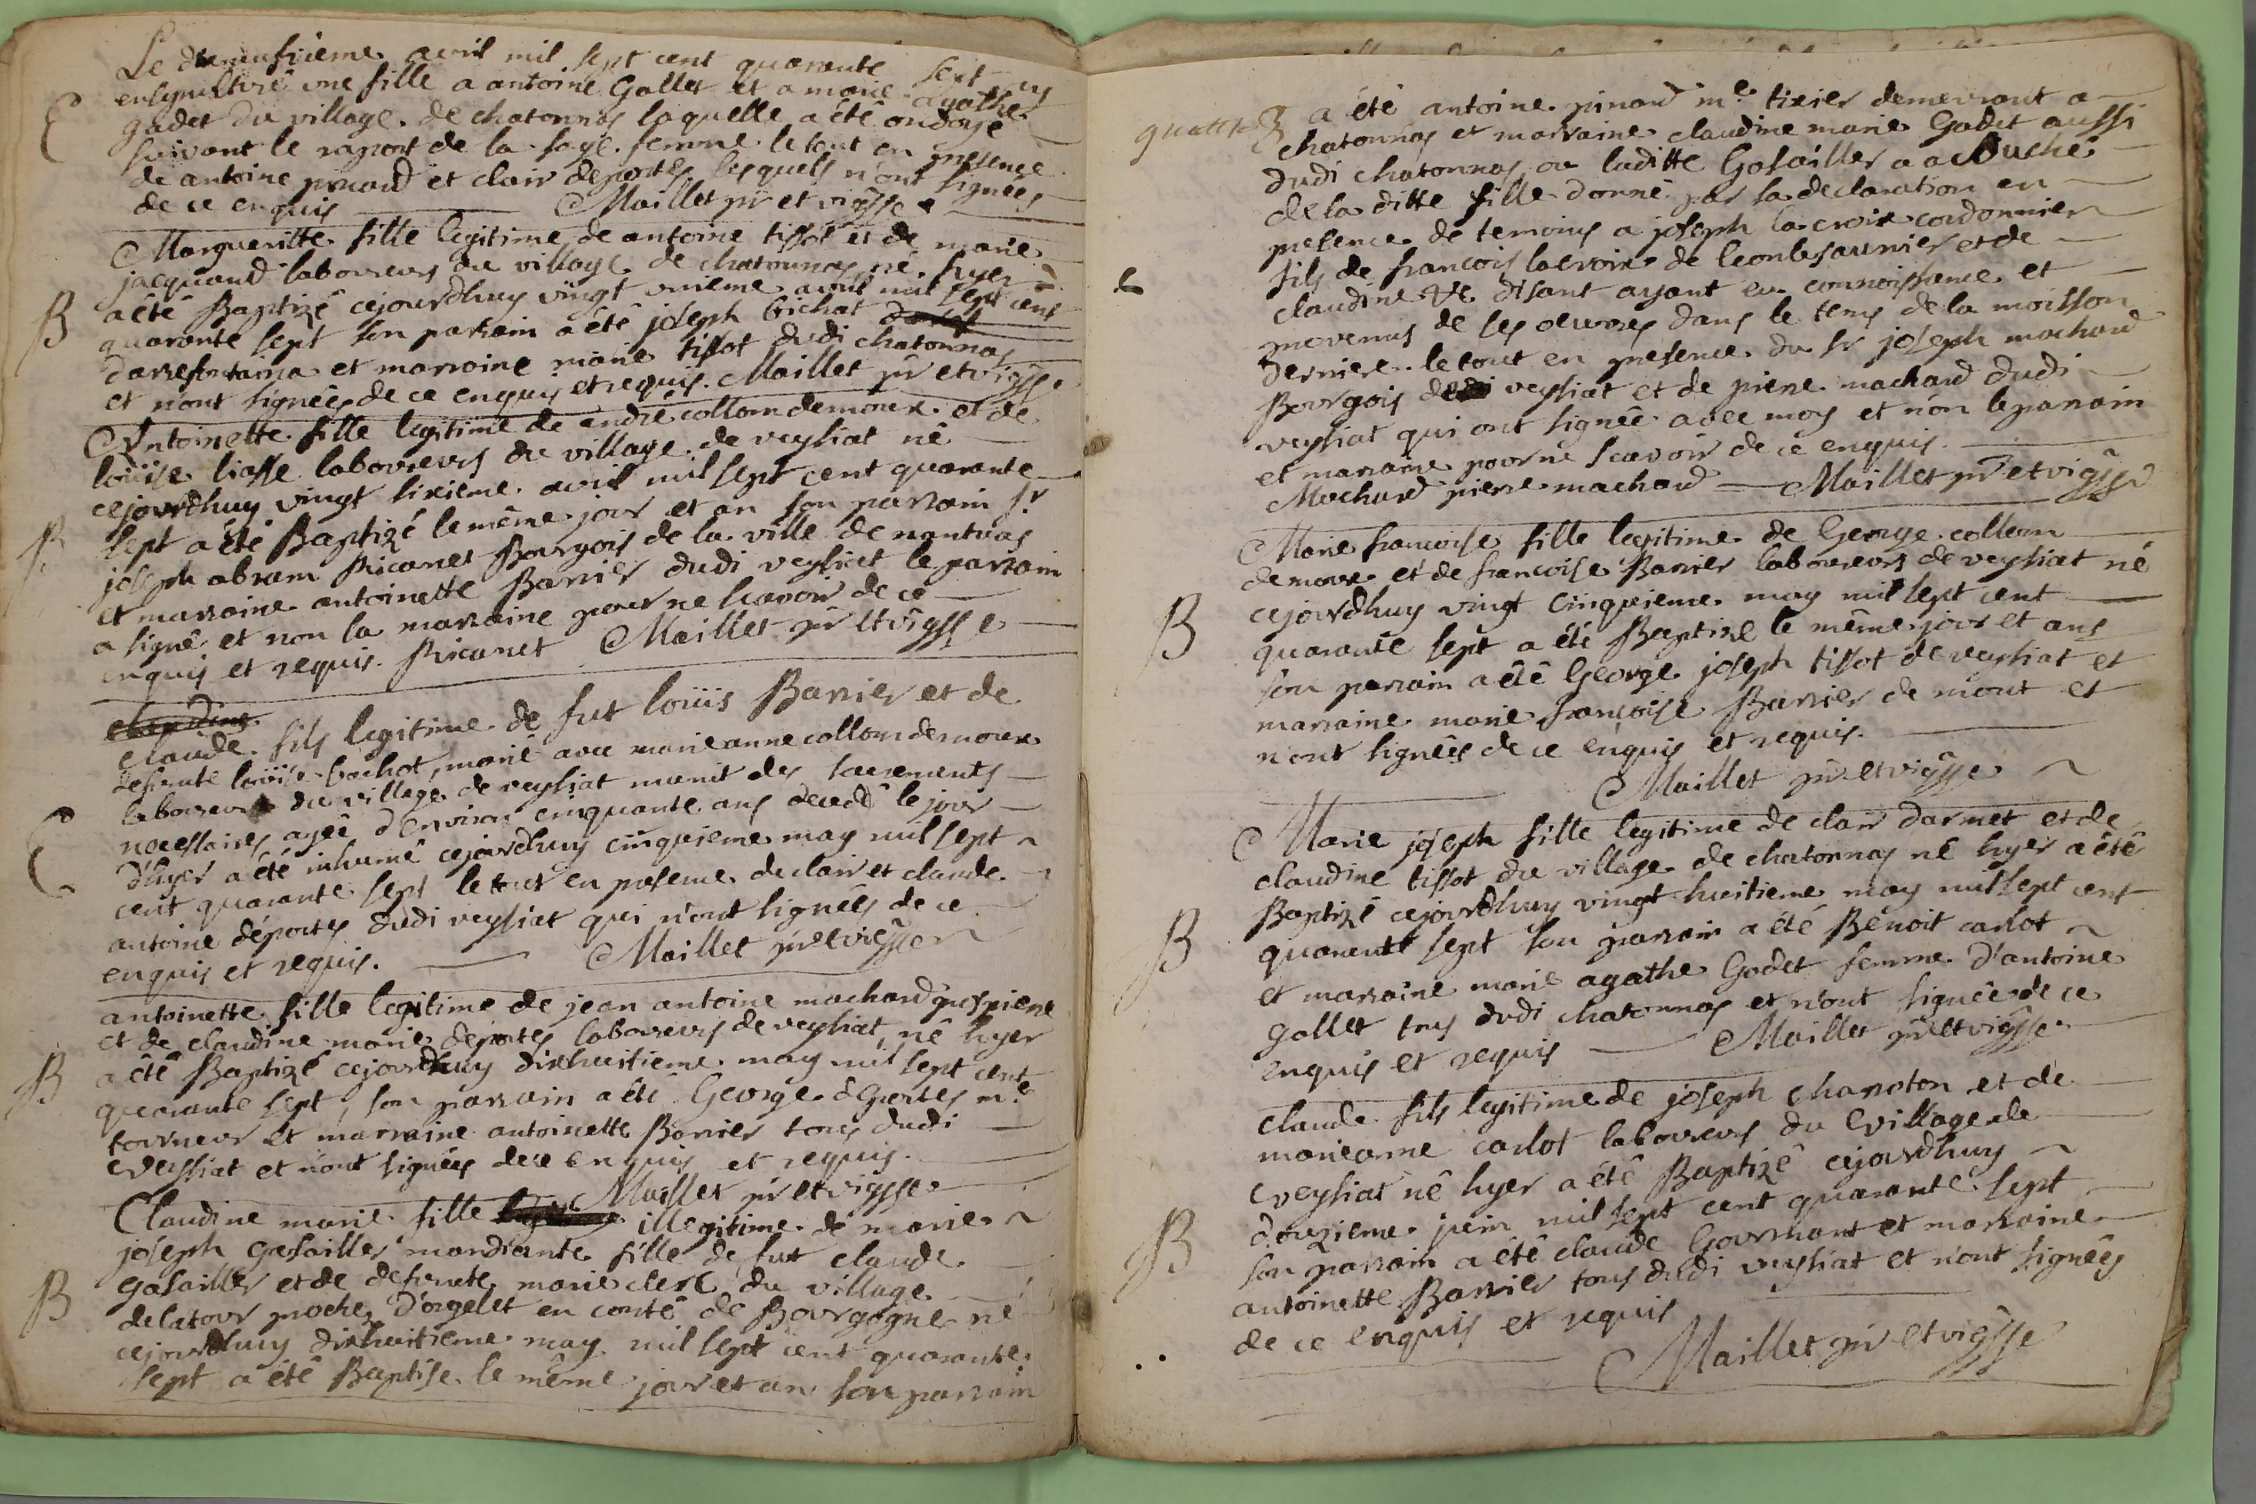 Le dixneufvieme avril mil sept cent quarante sept
ensepulturé une fille a antoine Gallet et a marie agathe
E
gadet du village de chatonnas laquelle a été ondoyé
suivant le raport de la sage femme le tout en presence
de antoine pinard et clair deportes lesquels n'ont signées
de ce enquis Maillet
Margueritte fille legitime de antoine tissot et de marie
jacquand laboureurs du village de chatonnas né hyer
B
a été Baptizé cejourdhuy vingt unieme avril mil sept cent
quarante sept son parrain a été joseph bichat
et marraine marie tissot dudi chatonnas
et n'ont signées de ce enquis et requis. Maillet pr et vigsse
Antoinette fille legitime de andre collomdemoux et de
loüise liasse laboureurs du village de veysiat né
cejourdhuy vingt sixieme avril mil sept cent quarante
B
sept a été Baptizé le même jour et an son parrain sr
joseph abram Ricanet Bourgois de la ville de nantuas
et marraine antoinette Barrier dudi veysiat le parrain
a signé et non la marraine pour ne scavoir de ce
enquis et requis. Ricanet Maillet pr et vigsse
claudine
claude fils legitime de fut loüis Barrier et de
defunte loüise bochot, marié avec marieanne collomdemoux
laboureur du village de veysiat munit des sacrements
necessaires agée d'environ cinquante ans decedé le jour
E
d'hyer a été inhumé cejourdhuy cinquieme may mil sept
cent quarante sept le tout en presence de clair et claude
antoine déportes dudi veysiat qui n'ont signées de ce
enquis et requis. Maillet pr et vigsse
antoinette fille legitime de jean antoine machard
et de claudine marie deportes laboureurs de veysiat né hyer
B
a été Baptizé cejourdhuy dixhuitieme may mil sept cent
quarante sept, son parrain a été George déportes me
tourneur et marraine antoinette Barrier tous dudi
veysiat et n'ont signées de ce enquis et requis.
Maillet pr et vigsse
Claudine marie fille illegitime de marie
joseph gasailler mandiante fille de fut claude
B
gasailler et de defunte marie clerc du village
delatour proche d'orgelet en comté de Bourgogne né
cejourdhuy dixhuitieme may mil sept cent quarante
sept a été Baptise le même jour et an son parrain
a été antoine pinard me tixier demeurant a
chatonnas et marraine claudine marie Gadet aussi
dudi chatonnas ou laditte Gosailler a acouché
de la ditte fille donné par sa declaration en
presence de temoins a joseph lacroix cordonnier
fils de francois lacroix de leonlesaunier et de
claudine disant ayant eu connoissance et
provenus de ses oeuvres dans le tems de la moisson
derniere le tout en presence du sr joseph machard
Bourgois de veysiat et de pierre machard dudi
veysiat qui ont signée avec moy et non le parrain
et marraine pour ne scavoir de ce enquis.
Machard pierre machard Maillet pr et vigsse
Marie francoise fille legitime de George collom
demoux et de francoise Barrier laboureurs de veysiat né
B
cejourdhuy vingt cinquieme may mil sept cent
quarante sept a été Baptize le même jour et ans
son parrain a été George joseph tissot de veysiat et
marraine marie françoise Barrier de mont et
n'ont signées de ce enquis et requis.
Maillet pr et vigsse
Marie joseph fille legitime de clair darmet et de
claudine tissot du village de chatonnas né hyer a été
B
Baptizé cejourdhuy vingt huitieme may mil sept cent
quarante sept son parrain a été Benoit carlot
et marraine marie agathe Gadet femme d'antoine
gallet tous dudi chatonnas et n'ont signée de ce
enquis et requis Maillet pr et vigsse
claude fils legitime de joseph charroton et de
marieanne carlot laboureurs du village de
veysiat né hyer a été Baptizé cejourdhuy
B
douzieme juin mil sept cent quarante sept
son parrain a été claude Gourmant et marraine
antoinette Barrier tous dudi veysiat et n'ont signées
de ce enquis et requis
Maillet pr et vigsse